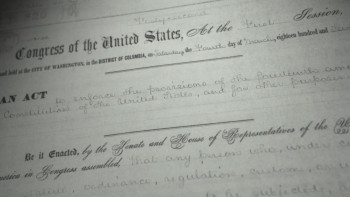 Forty Second
Congress of the United States, At the First Session,
and held at the CITY OF WASHINGTON, in the DISTRICT OF COLUMBIA, on Saturday the fourth day of March, eighteen hundred and
AN ACT to enforce the provisions of the fourteenth
Constitution of the United States, and for other purposes
Be it Enacted, by the Senate and House of Representatives of the
America in Congress assembled, That any person who, under
ordinance, regulation, custom, or
to be subjected,